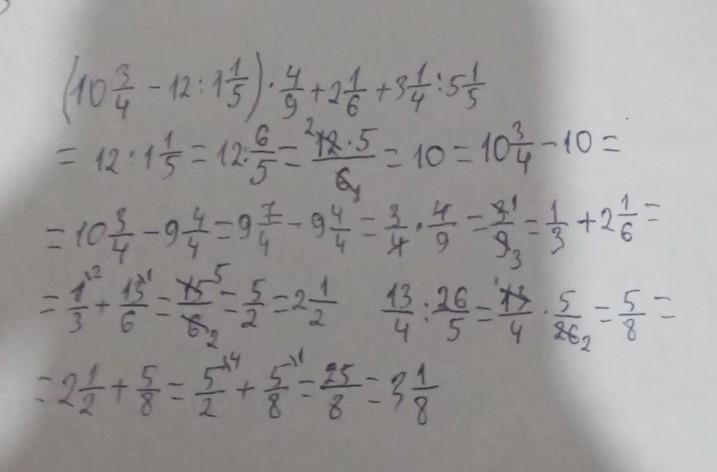 (10 3/4 - 12 : 1 1/5) · 4/9 + 2 1/6 + 3 1/4 : 5 1/5
= 12 : 1 1/5 = 12 : 6/5 = 12 · 5/6 = 10 = 10 3/4 - 10 =
= 10 3/4 - 9 4/4 = 9 7/4 - 9 4/4 = 3/4 · 4/9 = 3/9 = 1/3 + 2 1/6 =
= 1/3 + 13/6 = 15/6 = 5/2 = 2 1/2 13/4 : 26/5 = 13/4 · 5/26 = 5/8 =
= 2 1/2 + 5/8 = 5/2 + 5/8 = 25/8 = 3 1/8